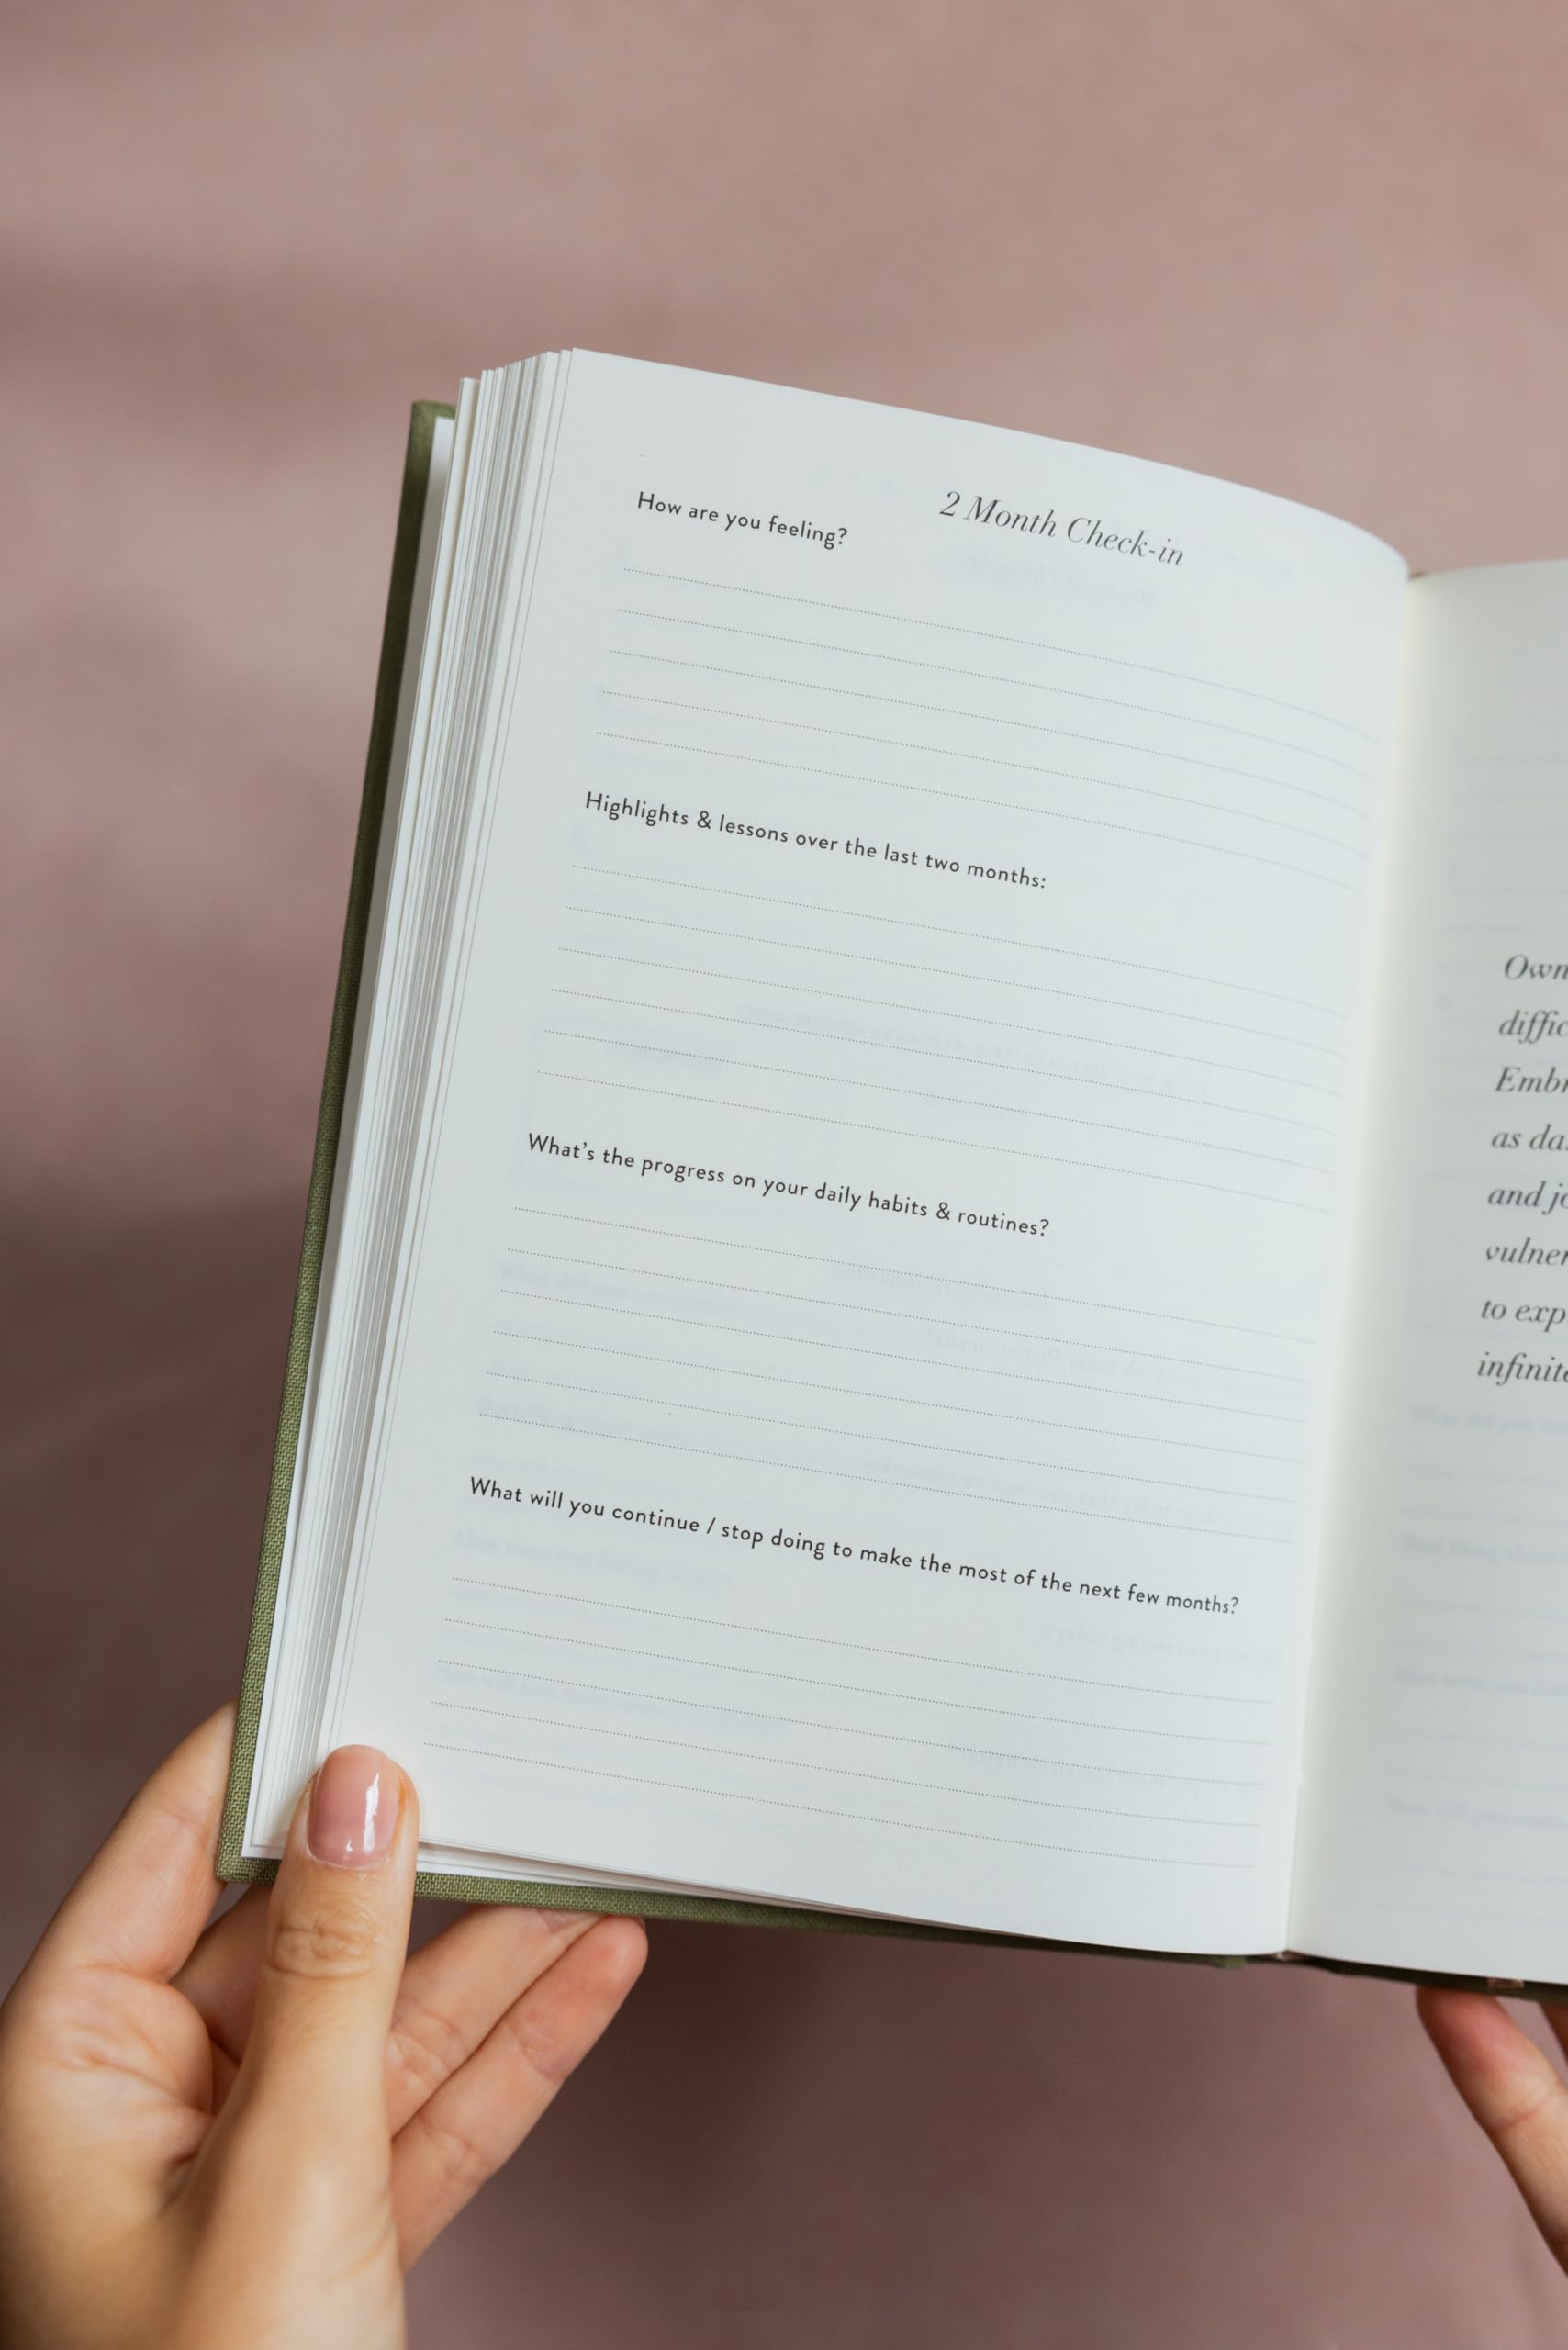 2 Month Check-in
How are you feeling?
Highlights & lessons over the last two months:
What's the progress on your daily habits & routines?
What will you continue / stop doing to make the most of the next few months?
Own
diffic
Embr
as da
and jo
vulner
to exp
infinite